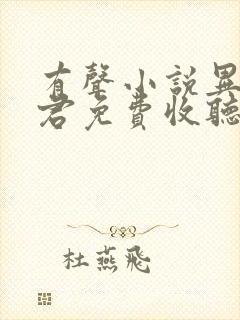 有聲小說異
君免費收聽
杜燕飛